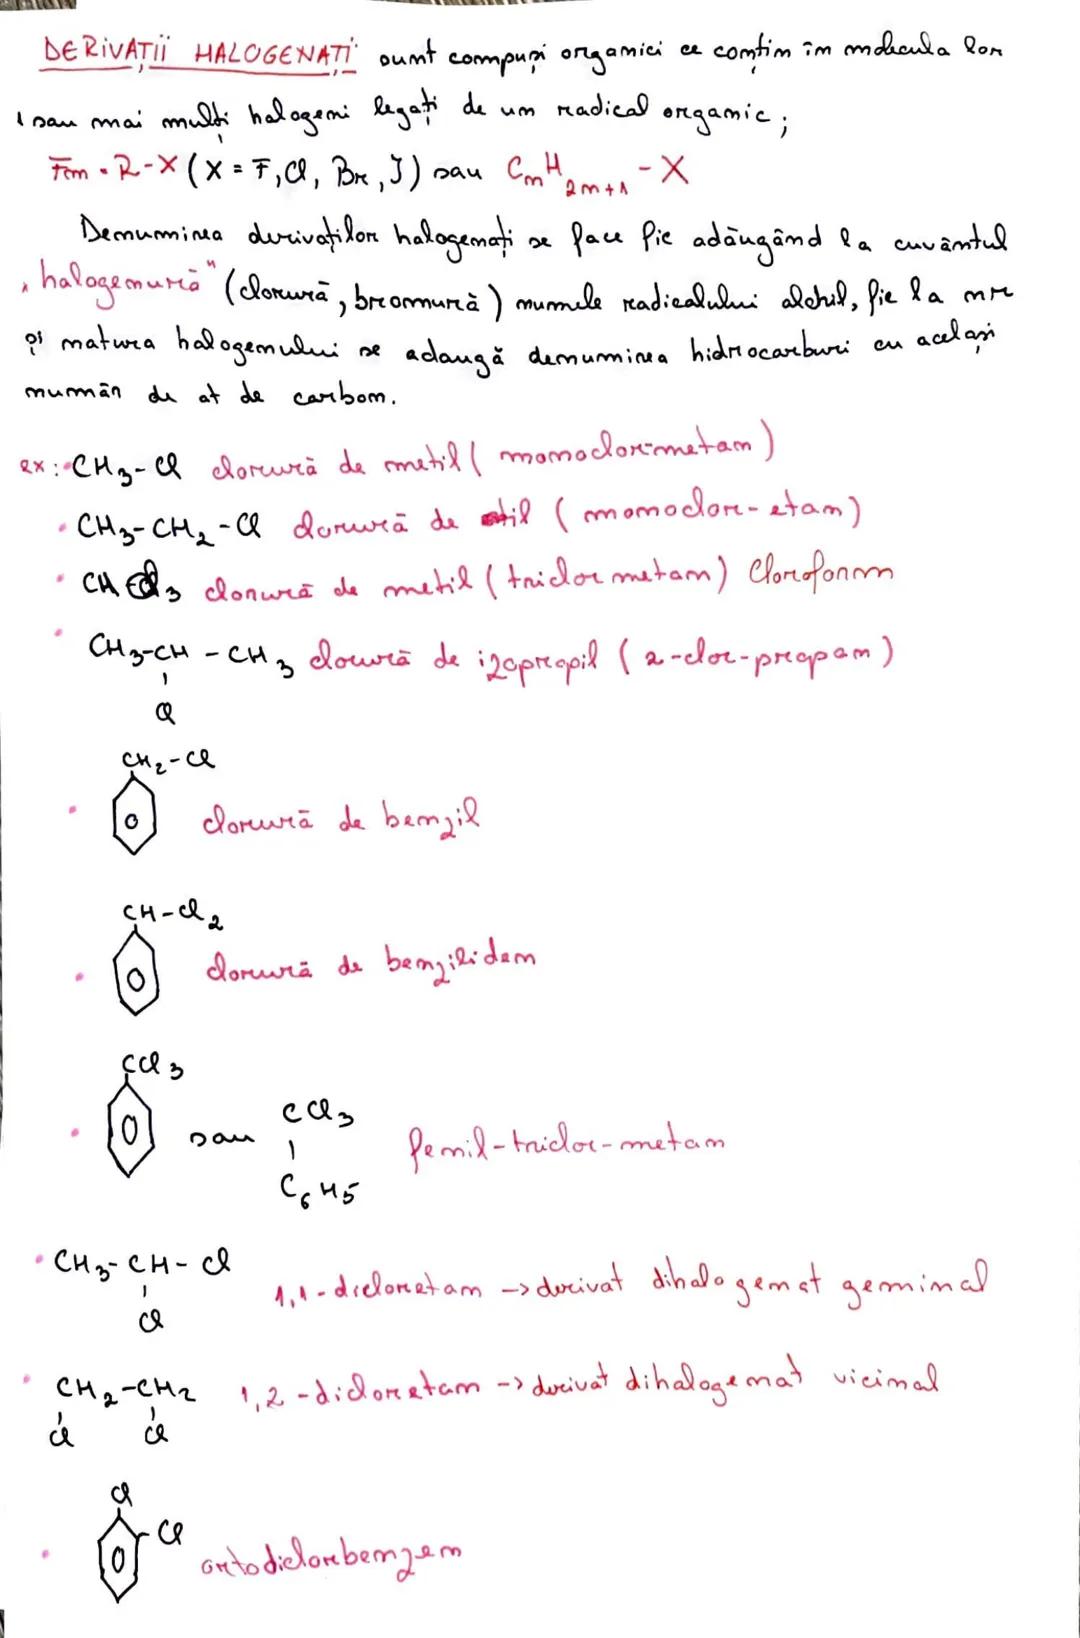 DERIVAȚII HALOGENAȚI sunt compuși organici ce conțin în molecula lor
1 sau mai mulți halogeni legați de un radical organic;
Fm • R-X (X = F, Cl, Br, I) sau CnH2n+1 - X
Denumirea derivaților halogenați se face fie adăugând la cuvântul
„halogenură" (clorură, bromură) numele radicalului alchil, fie la nr
și natura halogenului se adaugă denumirea hidrocarburi cu același
număr de at de carbon.
ex: • CH3-Cl clorură de metil (monoclor-metan)
• CH3-CH2-Cl clorură de etil (monoclor-etan)
• CHCl3 clorură de metil (triclor metan) Cloroform
• CH3-CH-CH3 clorură de izopropil (2-clor-propan)
Cl
CH2-Cl
• clorură de benzil
CH-Cl2
• clorură de benziliden
CCl3
• sau CCl3 fenil-triclor-metan
C6H5
• CH3-CH-Cl 1,1-dicloretan -> derivat dihalogenat geminal
Cl
• CH2-CH2 1,2-dicloretan -> derivat dihalogenat vicinal
Cl Cl
Cl
Cl
• ortodiclorbenzen